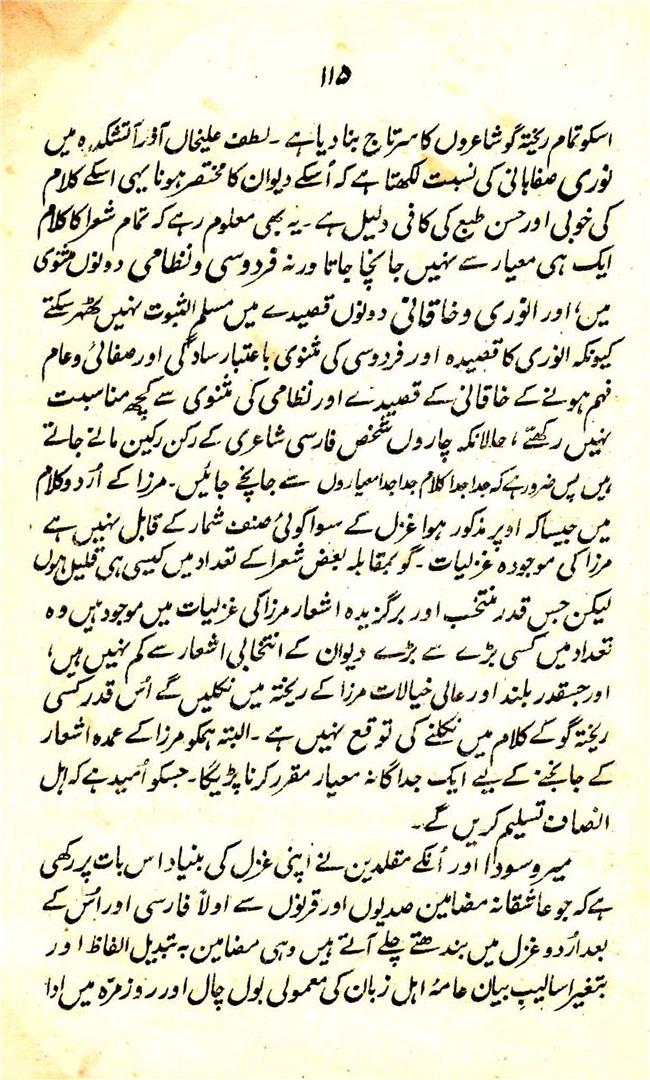 ۱۱۵
اسکو تمام ریختہ گو شاعروں کا سرتاج بنا دیا ہے ۔ لطف علیخاں آذر آتشکدہ میں
نوری صفاہانی کی نسبت لکھتا ہے کہ اُسکے دیوان کا مختصر ہونا یہی اسکے کلام
کی خوبی اور حسن طبع کی کافی دلیل ہے ۔ یہ بھی معلوم رہے کہ تمام شعرا کا کلام
ایک ہی معیار سے نہیں جانچا جاتا ورنہ فردوسی و نظامی دونوں مثنوی
میں، اور انوری و خاقانی دونوں قصیدے میں مسلم الثبوت نہیں ٹھہر سکتے
کیونکہ انوری کا قصیدہ اور فردوسی کی مثنوی باعتبار سادگی اور صفائی و عام
فہم ہونے کے خاقانی کے قصیدے اور نظامی کی مثنوی سے کچھ مناسبت
نہیں رکھتے ، حالانکہ چاروں شخص فارسی شاعری کے رکن رکین مانے جاتے
ہیں پس ضرور ہے کہ جدا جدا کلام جدا جدا معیاروں سے جانچے جائیں ۔ مرزا کے اُردو کلام
میں جیسا کہ اوپر مذکور ہوا غزل کے سوا کوئی صنف شمار کے قابل نہیں ہے
مرزا کی موجودہ غزلیات ۔ گو بمقابلہ بعض شعرا کے تعداد میں کیسی ہی قلیل ہوں
لیکن جس قدر منتخب اور برگزیدہ اشعار مرزا کی غزلیات میں موجود ہیں وہ
تعداد میں کسی بڑے سے بڑے دیوان کے انتخابی اشعار سے کم نہیں ہیں،
اور جسقدر بلند اور عالی خیالات مرزا کے ریختہ میں نکلیں گے اُس قدر کسی
ریختہ گو کے کلام میں نکلنے کی توقع نہیں ہے ۔ البتہ ہمکو مرزا کے عمدہ اشعار
کے جانچنے کے لیے ایک جداگانہ معیار مقرر کرنا پڑیگا ۔ جسکو اُمید ہے کہ اہل
انصاف تسلیم کریں گے ۔
میر و سودا اور اُنکے مقلدین نے اپنی غزل کی بنیاد اس بات پر رکھی
ہے کہ جو عاشقانہ مضامین صدیوں اور قرنوں سے اولاً فارسی اور اُس کے
بعد اُردو غزل میں بندھتے چلے آتے ہیں وہی مضامین بہ تبدیل الفاظ اور
بتغیر اسالیبِ بیان عامۂ اہل زبان کی معمولی بول چال اور روزمرّہ میں ادا